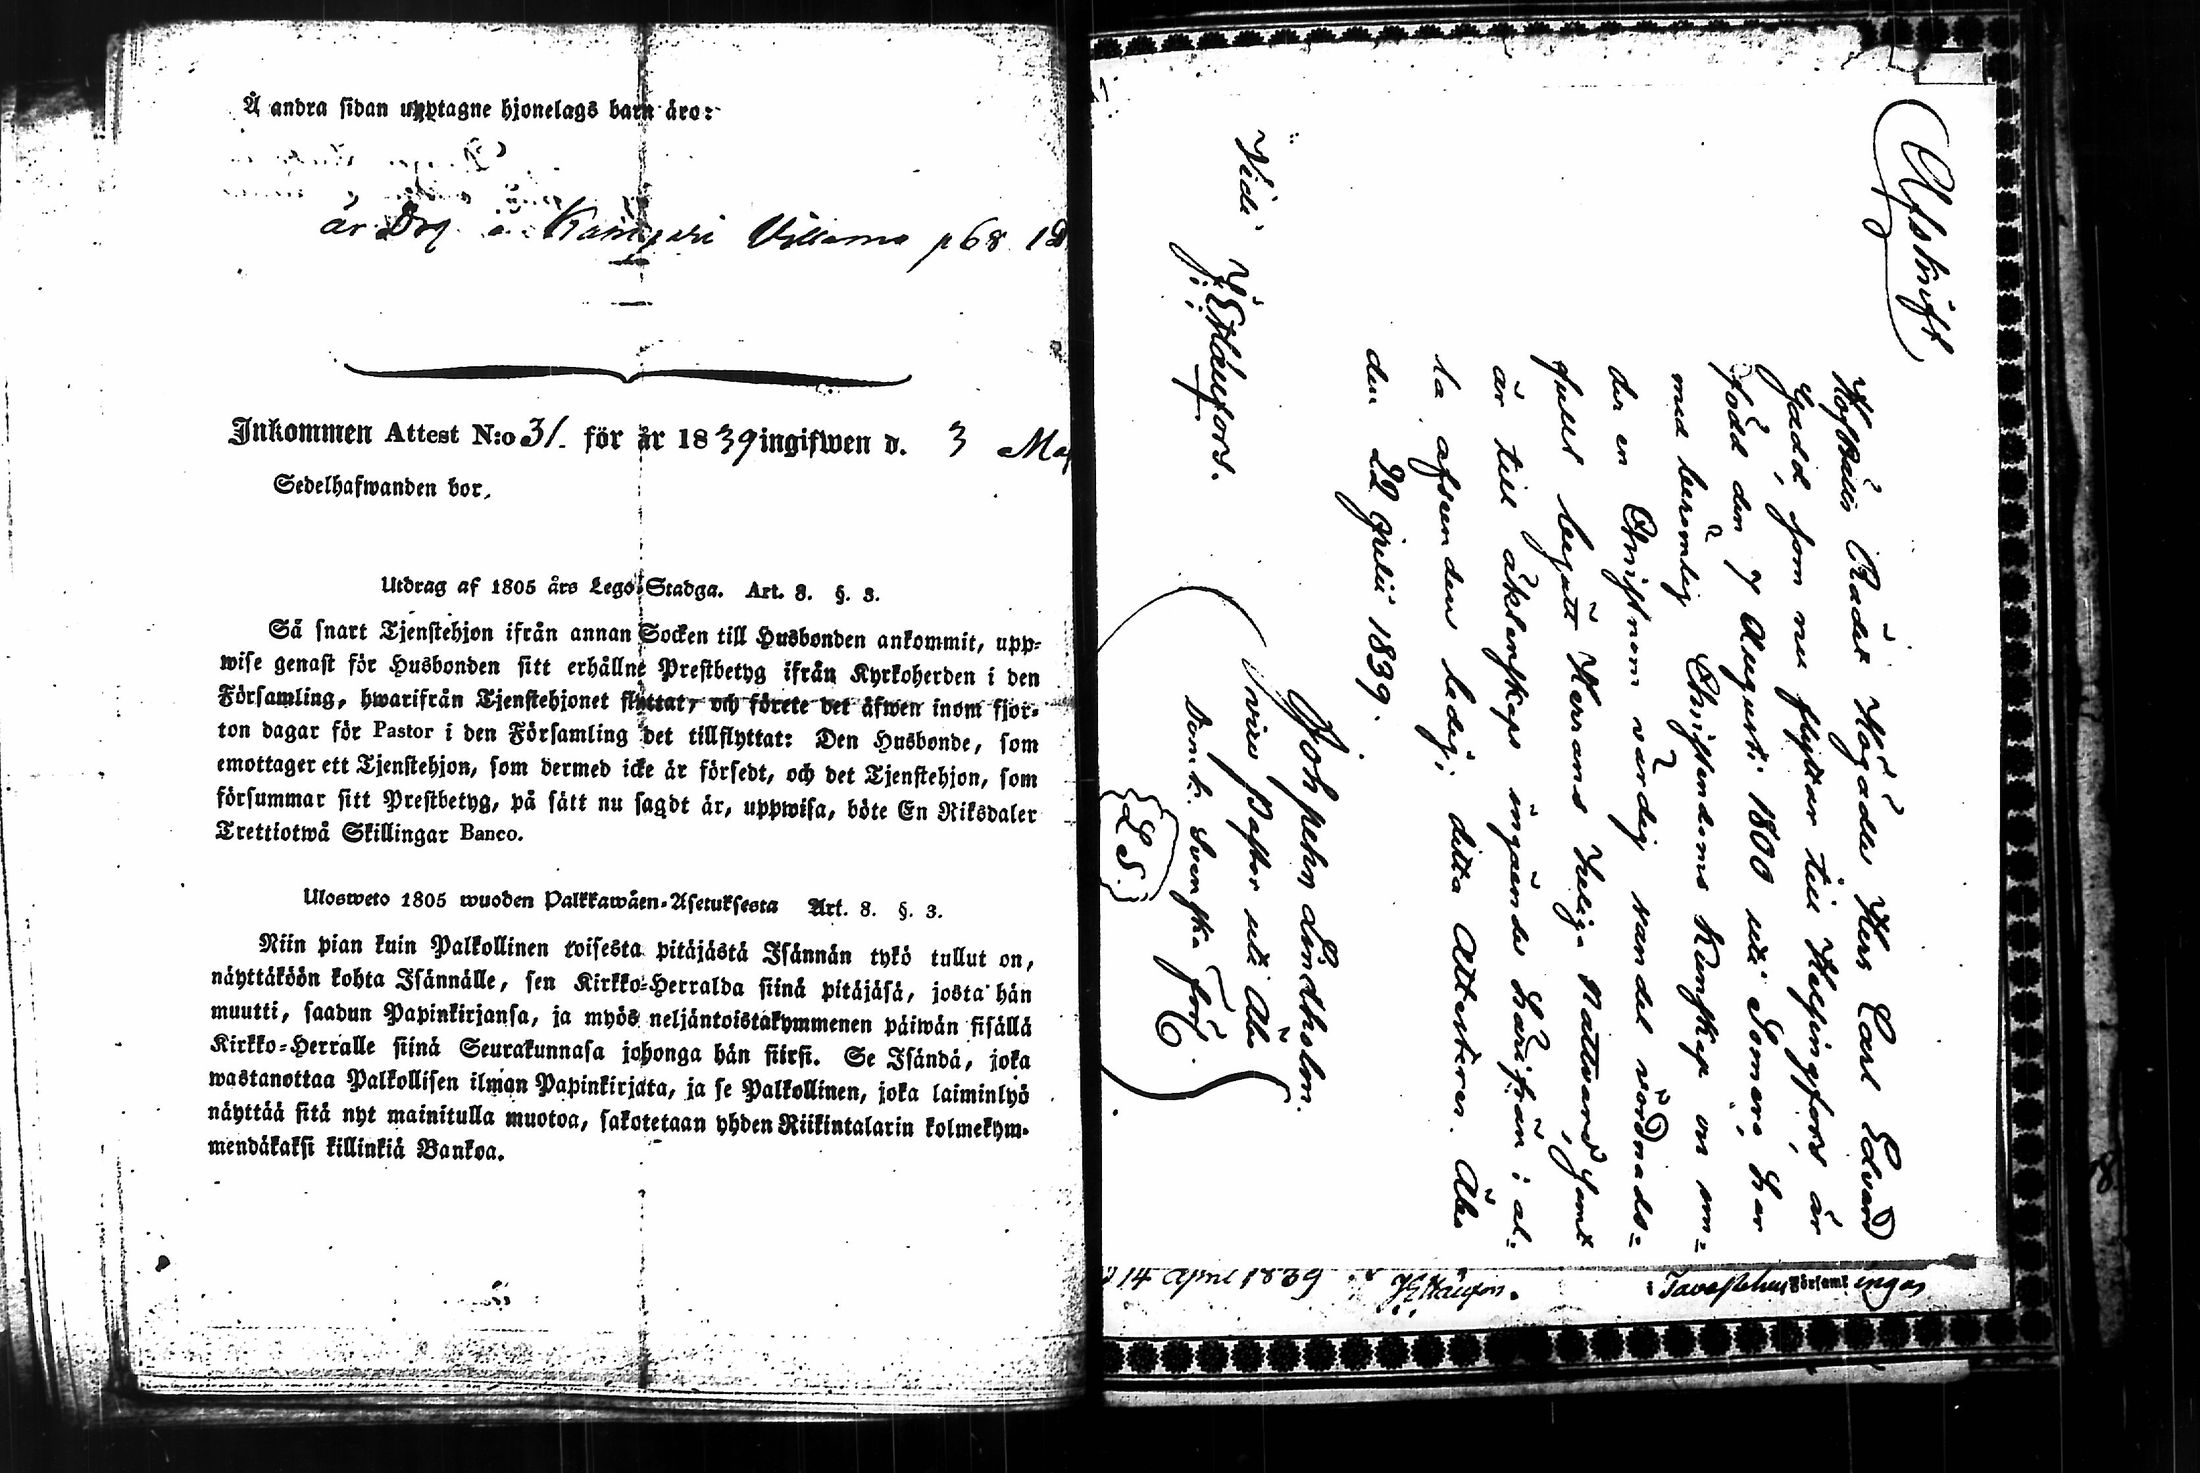 Å andra sidan upptagne hjonelags barn äro:
är Drg å Kämpäri Villamo p 68
Inkommen Attest N:o 31. för år 1839 ingifwen d. 3 Maj
Sedelhafwanden bor,
Utdrag af 1805 års Lego-Stadga. Art. 8. §. 3.
Så snart Tjenstehjon ifrån annan Socken till Husbonden ankommit, upp-
wise genast för Husbonden sitt erhållne Prestbetyg ifrån Kyrkoherden i den
Församling, hwarifrån Tjenstehjonet flyttat, och förete det äfwen inom fjor-
ton dagar för Pastor i den Församling det tillflyttat: Den Husbonde, som
emottager ett Tjenstehjon, som dermed icke är försedt, och det Tjenstehjon, som
försummar sitt Prestbetyg, på sätt nu sagdt är, uppwisa, böte En Riksdaler
Trettiotwå Skillingar Banco.
Ulosweto 1805 wuoden Palkkawäen-Asetuksesta Art. 8. §. 3.
Niin pian kuin Palkollinen toisesta pitäjästä Isännän tykö tullut on,
näyttäköön kohta Isännälle, sen Kirkko-Herralda siinä pitäjäsä, josta hän
muutti, saadun Papinkirjansa, ja myös neljäntoistakymmenen päiwän sisällä
Kirkko-Herralle siinä Seurakunnasa johonga hän siirsi. Se Isändä, joka
wastanottaa Palkollisen ilman Papinkirjata, ja se Palkollinen, joka laiminlyö
näyttää sitä nyt mainitulla muotoa, sakotetaan yhden Riikintalarin kolmekym-
mendäkaksi killinkiä Bankoa.
Afskrift
HofRätts Rådet Högädle Herr Carl Edvard
Gadd, som nu flyttar till Helsingfors, är
född den 7 Augusti 1800 uti Somero, har
med berömlig Christendoms kunskap on om-
der en Christnom värdig vandel vördnads-
fullt begått Herrans Helige Nattvard, samt
är till äktenskaps ingående härifrån i al-
la afseenden ledig; detta Attesteres. Åbo
den 22 Aprill 1839.
Joh pehr Lindholm.
vice Pastor uti Åbo
Domk. Svenska Förs.
L. S.
Vidi
14 April 1839
i Tavastehus Församl ingas